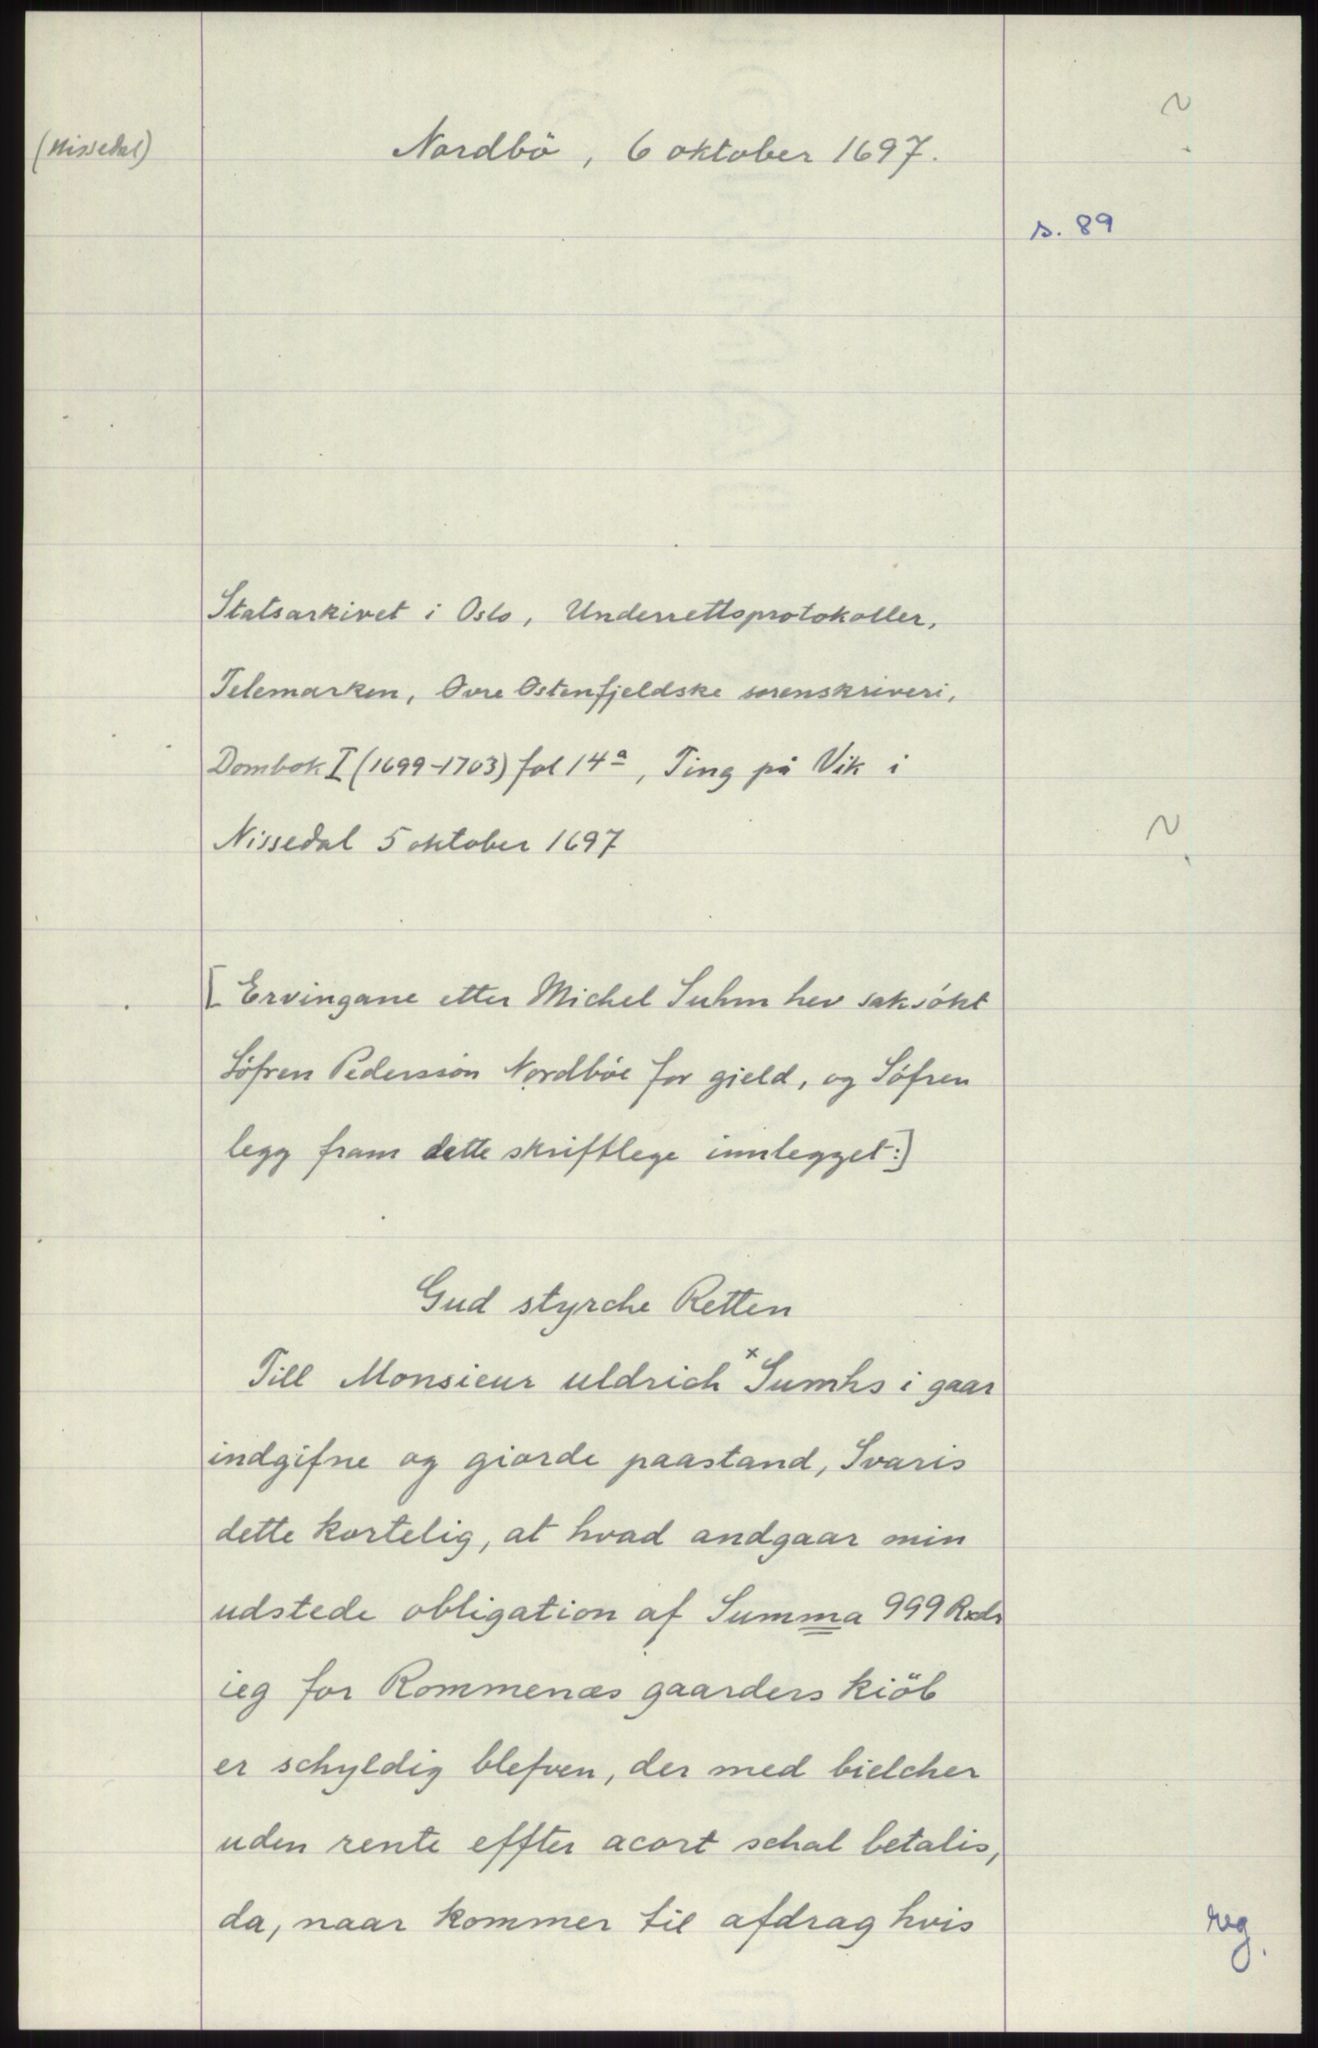 (Nissedal)
Nordbö, 6 oktober 1697.
s. 89
Statsarkivet i Oslo, Underrettsprotokoller,
Telemarken, Øvre Østenfjeldske sorenskriveri,
Dombok I (1699-1703) fol 14a, Ting på Vik i
Nissedal 5 oktober 1697
[Ervingane etter Michel Suhm hev saksökt
Söfren Pederssön Nordböe for gield, og Söfren
legg fram dette skriftlege innlegget:]
Gud styrche Retten
Till Monsieur uldrich x Sumhs i gaar
indgifne og giorde paastand, Svaris
dette kortelig, at hvad andgaar min
udstede obligation af Summa 999 Rxdr
ieg for Rommenæs gaarders kiöb
er schyldig blefven, der med bielcher
uden rente effter acort schal betalis,
da, naar kommer til afdrag hvis
reg.